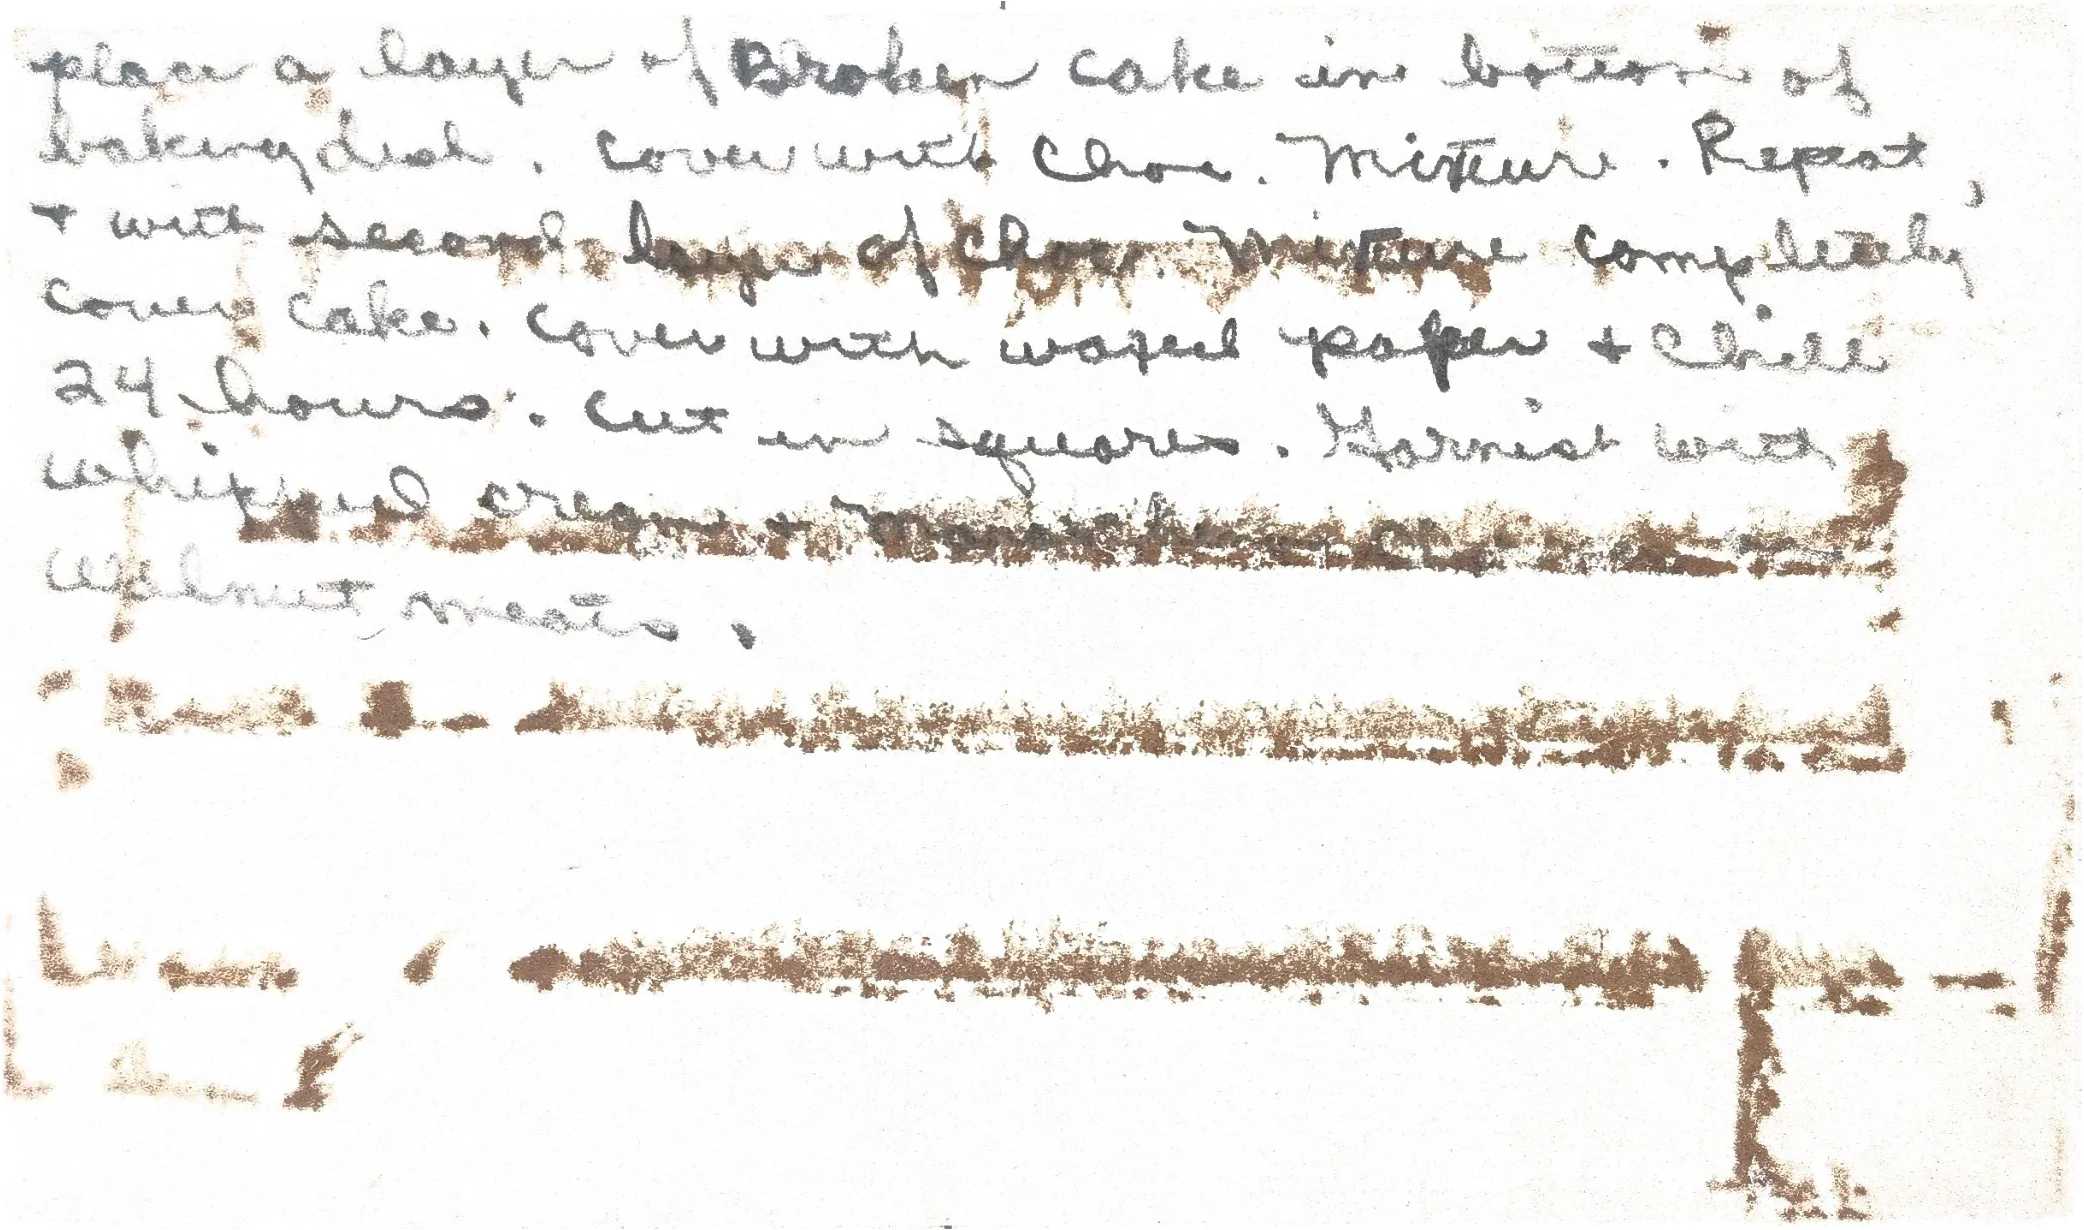 place a layer of Broken cake in bottom of
baking dish. Cover with Choc. Mixture. Repeat,
+ with second layer of Choc. Mixture completely
cover cake. Cover with waxed paper + Chill
24 hours. Cut in squares. Garnish with
whipped cream + Maraschino
walnut meats.